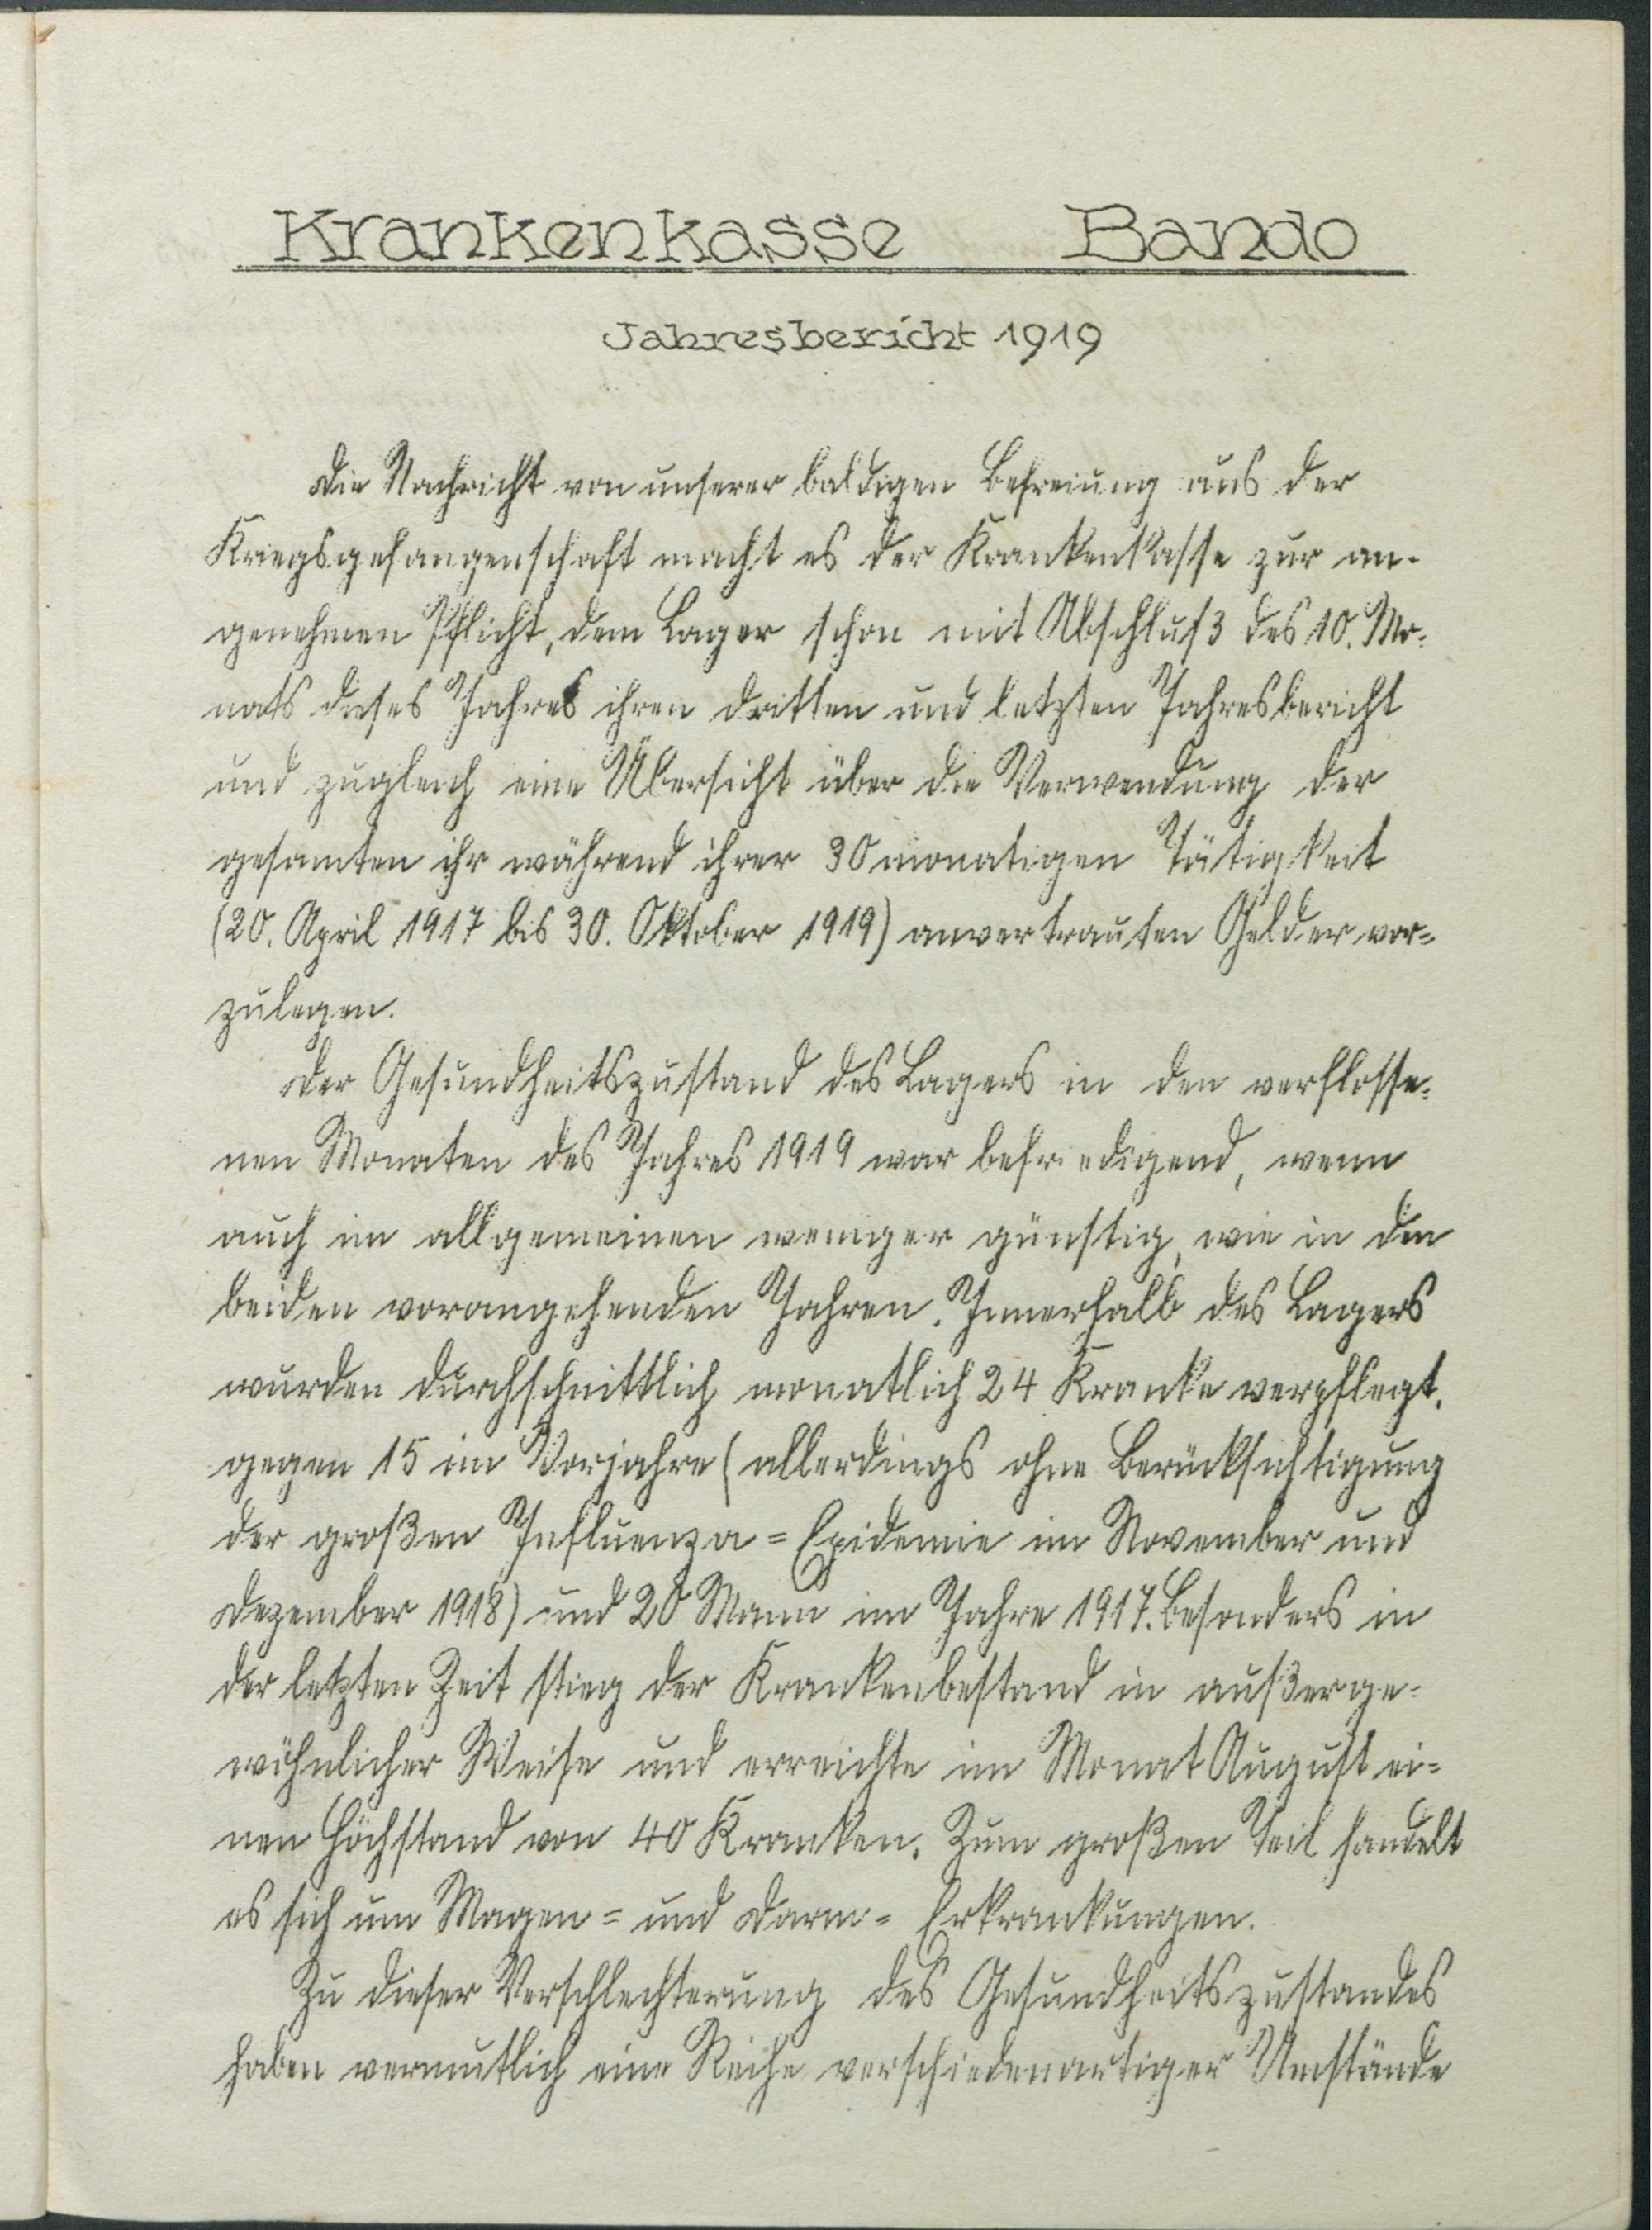 Krankenkasse Bando
Jahresbericht 1919
Die Nachricht von unserer baldigen Befreiung aus der
Kriegsgefangenschaft macht es der Krankenkasse zur an-
genehmen Pflicht, dem Lager schon mit Abschluß des 10. Mo-
nats dieses Jahres ihren dritten und letzten Jahresbericht
und zugleich eine Übersicht über die Verwendung der
gesamten ihr während ihrer 30 monatigen Tätigkeit
(20. April 1917 bis 30. Oktober 1919) anvertrauten Gelder vor-
zulegen.
Der Gesundheitszustand des Lagers in den verflosse-
nen Monaten des Jahres 1919 war befriedigend, wenn
auch im allgemeinen weniger günstig, wie in den
beiden vorangehenden Jahren. Innerhalb des Lagers
wurden durchschnittlich monatlich 24 Kranke verpflegt,
gegen 15 im Vorjahre (allerdings ohne Berücksichtigung
der großen Influenza=Epidemie im November und
Dezember 1918) und 20 Mann im Jahre 1917. Besonders in
der letzten Zeit stieg der Krankenbestand in außerge-
wöhnlicher Weise und erreichte im Monat August ei-
nen Höchstand von 40 Kranken. Zum großen Teil handelt
es sich um Magen= und Darm= Erkrankungen.
Zu dieser Verschlechterung des Gesundheitszustandes
haben vermutlich eine Reihe verschiedenartiger Umstände